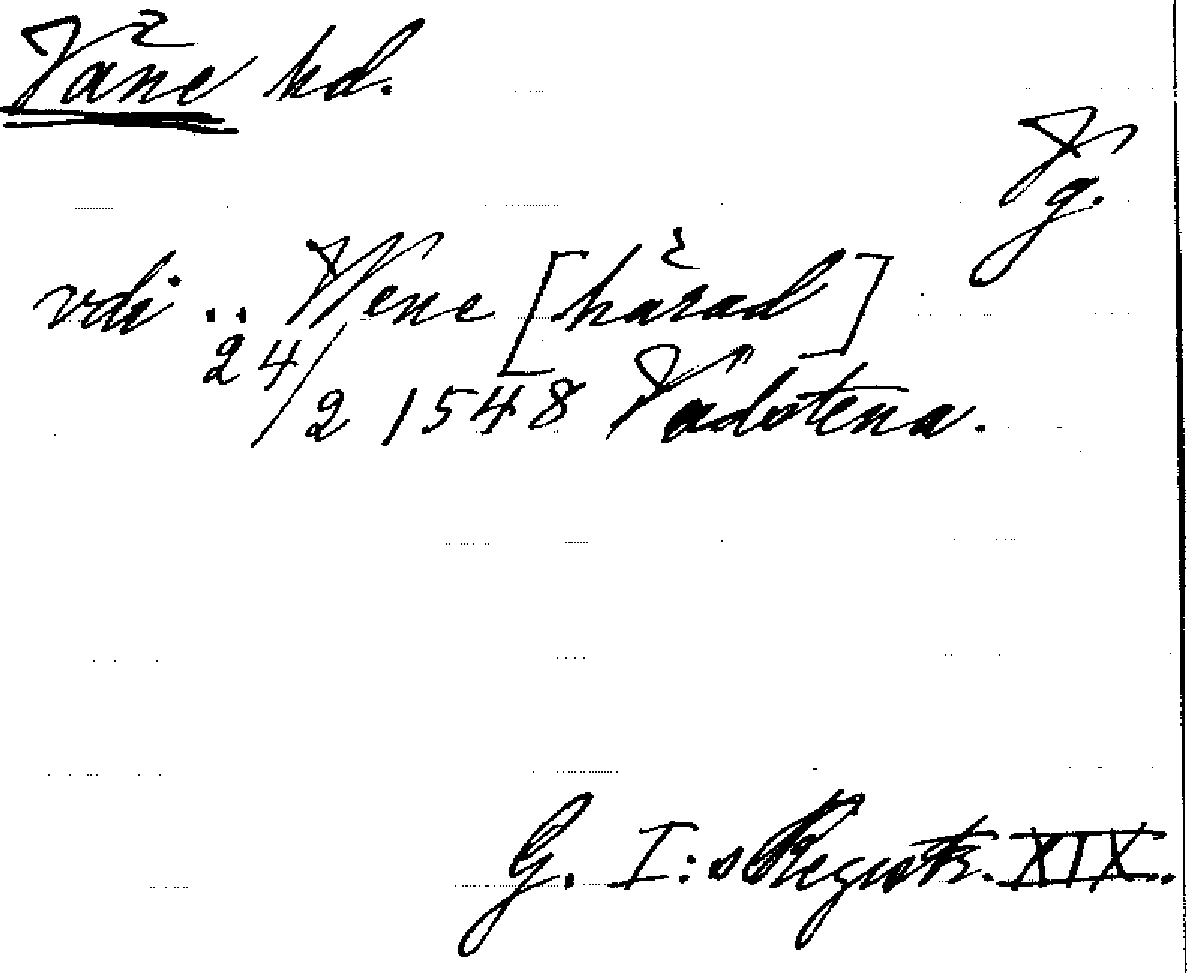 Väne hd.
Vg.
vdi .. Wene [härad]
24/2 1548 Vadstena.
G. I:s Registr. XIX.